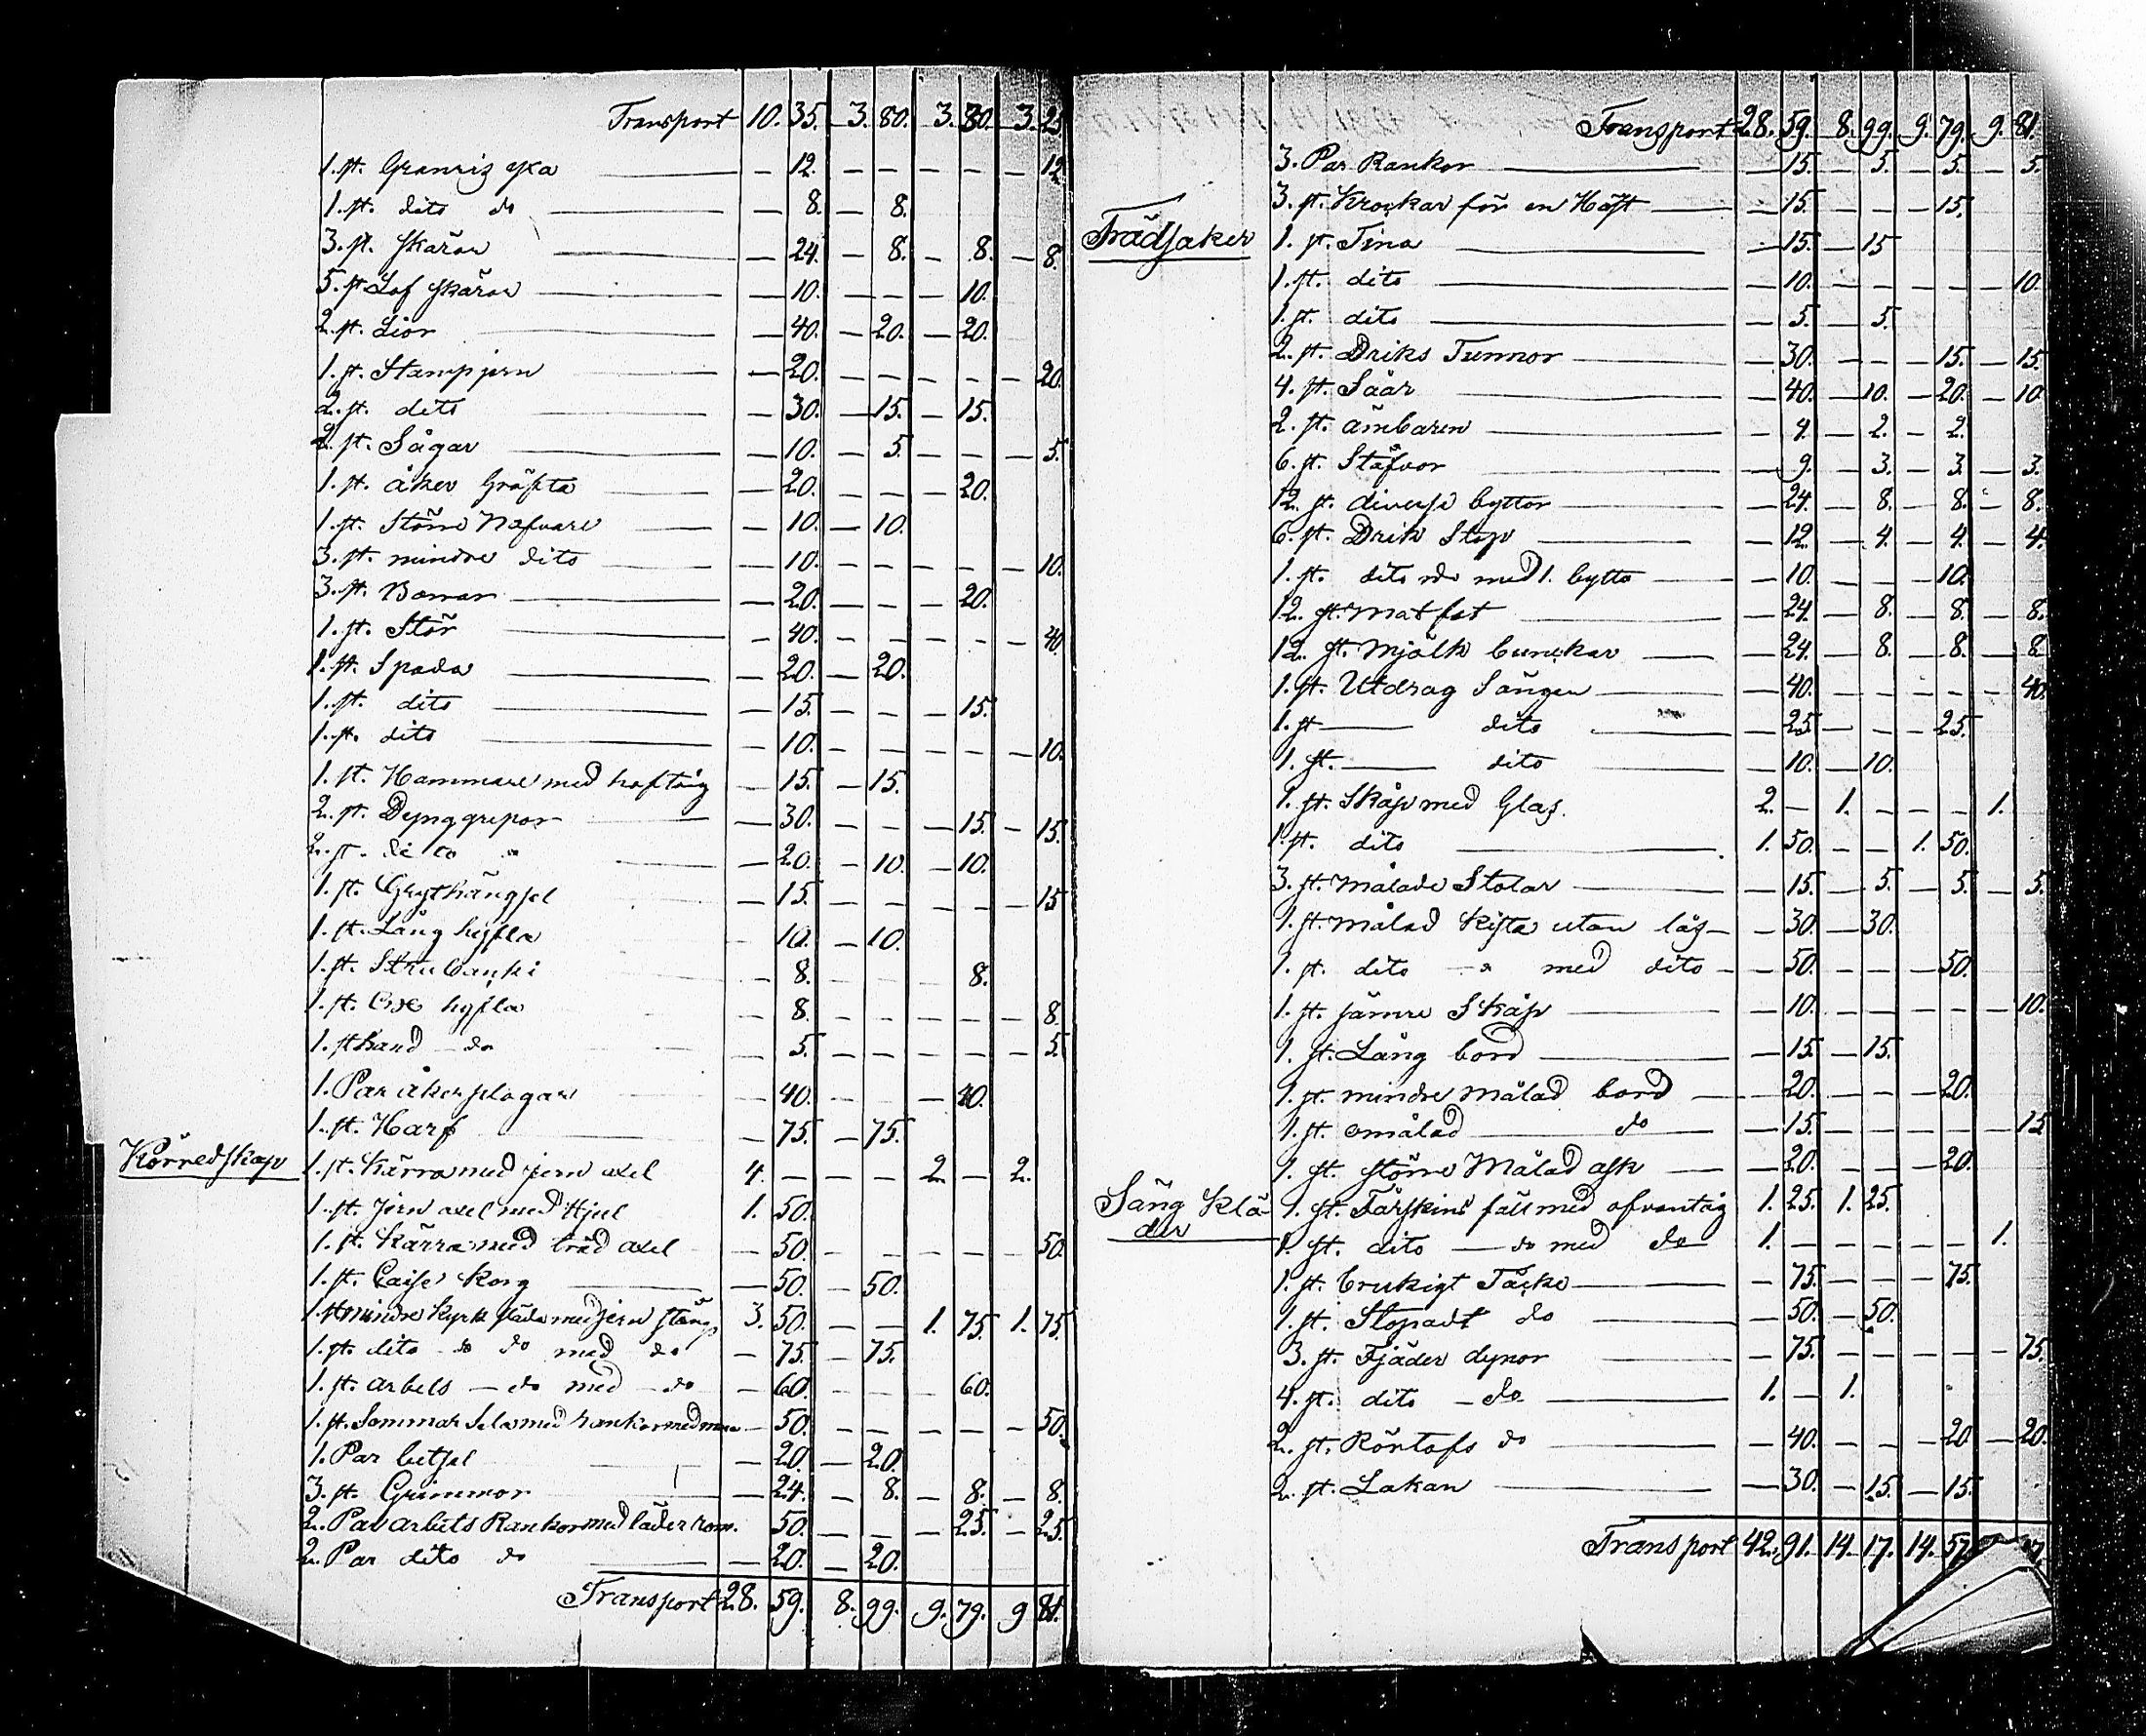 Transport 10. 35. 3. 80. 3. 30. 3. 25
1. st. Granris yxa — 12. — — — — — 12
1. st. dito do — 8. — 8.
3. st. skäror — 24. — 8. — 8. — 8.
5. st Löf skäror — 10. — — — 10.
2. st. Liar — 40. — 20. — 20.
1. st. Stampjern — 20. — — — — — 20.
2. st. dito — 30. — 15. — 15.
2. st. Sågar — 10. — 5. — — — 5.
1. st. åker Gräfta — 20. — — — 20.
1. st. Större Nafvare — 10. — 10.
3. st. mindre dito — 10. — — — — — 10.
3. st. Borrar — 20. — — — 20.
1. st. Stör — 40. — — — — — 40.
1. st. Spada — 20. — 20.
1. st. dito — 15. — — — 15.
1. st. dito — 10. — — — — — 10.
1. st. Hammare med hoftång — 15. — 15.
2. st. Dynggrepar — 30. — — — 15. — 15.
2. st. dito " — 20. — 10. — 10.
1. st. Grythängsel — 15. — — — — — 15
1. st. Lång hyfla — 10. — 10.
1. st. Strubanki — 8. — — — 8.
1. st. Oxe hyfla — 8. — — — — — 8.
1. st hand — do — 5. — — — — — 5.
1. Par åker plogar — 40. — — — 40.
1. st. Harf — 75. — 75.
Körredskap 1. st. Kärra med jern axel 4. — — — 2. — 2.
1. st. Jern axel med Hjul 1. 50.
1. st. Kärra med träd axel — 50. — — — — — 50.
1. st. Korg — 50. — 50.
1. st mindre Kyrk släda med jern stäng 3. 50. — — 1. 75. 1. 75.
1. st. dito do do med do — 75. — 75.
1. st. arbets — do med — do — 60. — — — 60.
1. st. Sommar Sela med rankor med — 50. — — — — — 50.
1. Par betsel — 20. — 20.
3. st. Grimmor — 24. — 8. — 8. — 8.
2. Par arbets Rankor med läder rem. 50. — — — 25. — 25.
2. Par dito do — 20. — 20.
Transport 28. 59. 8. 99. 9. 79. 9 81.
Transport 28. 59. 8. 99. 9. 79. 9. 81.
3. Par Rankor — 15. — 5. — 5. — 5.
3. st. Krokar för en Häst — 15. — — — 15.
Trädsaker 1. st. Tina — 15. — 15
1. st. dito — 10. — — — — — 10.
1. st. dito — 5. — 5.
2. st. Driks Tunnor — 30. — — — 15. — 15.
4. st. Såår — 40. — 10. — 20. — 10
2. st. ämbaren — 4. — 2. — 2.
6. st. Stäfvor — 9. — 3. — 3. — 3.
12. st. diverse byttor — 24. — 8. — 8. — 8.
6. st. Drik Stop — 12. — 4. — 4. — 4.
1. st. dito do med 1. bytta — 10. — — — 10.
12. st. Matfat — 24. — 8. — 8. — 8.
12. st. Mjölk bunckar — 24. — 8. — 8. — 8
1. st. Utdrag Sängen — 40. — — — — — 40.
1. st — dito — 25. — — — 25.
1. st. — dito — 10. — 10.
1. st. Skåp med Glas. 2. — 1. — — — 1.
1. st. dito 1. 50. — — 1. 50.
3. st. målade Stolar — 15. — 5. — 5. — 5.
1. st. målad Kista utan lås — 30. — 30.
1. st. dito — " med dito — 50. — — — 50.
1. st. sämre Skåp — 10. — — — — — 10.
1. st. Lång bord — 15. — 15.
1. st. mindre målad bord — 20. — — — 20.
1. st. omålad — do — 15. — — — — — 15
1. st. större Målad ask — 20. — — — 20.
Säng Klä- 1. st. Fårskins fäll med ofvantåg 1. 25. 1. 25.
der 1. st. dito — do med do 1. — — — — — 1.
1. st. brukigt Täcke — 75. — — — 75.
1. st. Stopadt do — 50. — 50.
3. st. Fjäder dynor — 75. — — — — — 75.
4. st. dito — do 1. — 1.
2. st. Rörtofs do — 40. — — — 20 — 20.
2. st. Lakan — 30. — 15. — 15.
Transport 42. 91. 14. 17. 14. 57.